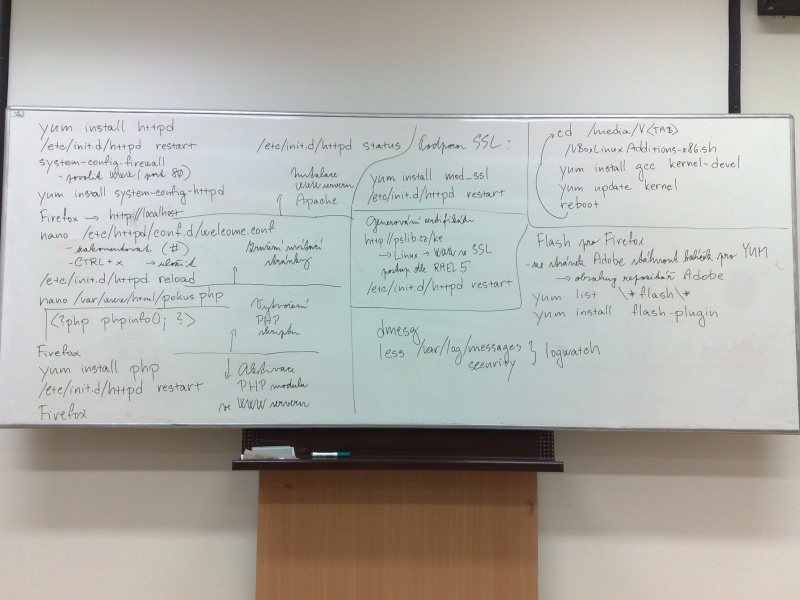 yum install httpd
/etc/init.d/httpd restart
/etc/init.d/httpd status
system-config-firewall
- povolit WWW (port 80)
yum install system-config-httpd
Instalace
WWW serveru
Apache
Firefox → http://localhost
nano /etc/httpd/conf.d/welcome.conf
- zakomentovat (#)
- CTRL+x → uložit
Zrušení uvítací
stránky
/etc/init.d/httpd reload
nano /var/www/html/pokus.php
<?php phpinfo(); ?>
Vytvoření
PHP
skriptu
Firefox
yum install php
/etc/init.d/httpd restart
Firefox
Aktivace
PHP modulu
ve WWW serveru
Podpora SSL:
yum install mod_ssl
/etc/init.d/httpd restart
Generování certifikátu
http://pslib.cz/ke
→ Linux → WWW se SSL
postup dle RHEL 5
/etc/init.d/httpd restart
dmesg
less /var/log/messages
security
} logwatch
cd /media/V<TAB>
./VBoxLinuxAdditions-x86.sh
yum install gcc kernel-devel
yum update kernel
reboot
Flash pro Firefox
- ze stránek Adobe stáhnout balíček pro YUM
→ obsahuj repozitář Adobe
yum list \*flash\*
yum install flash-plugin